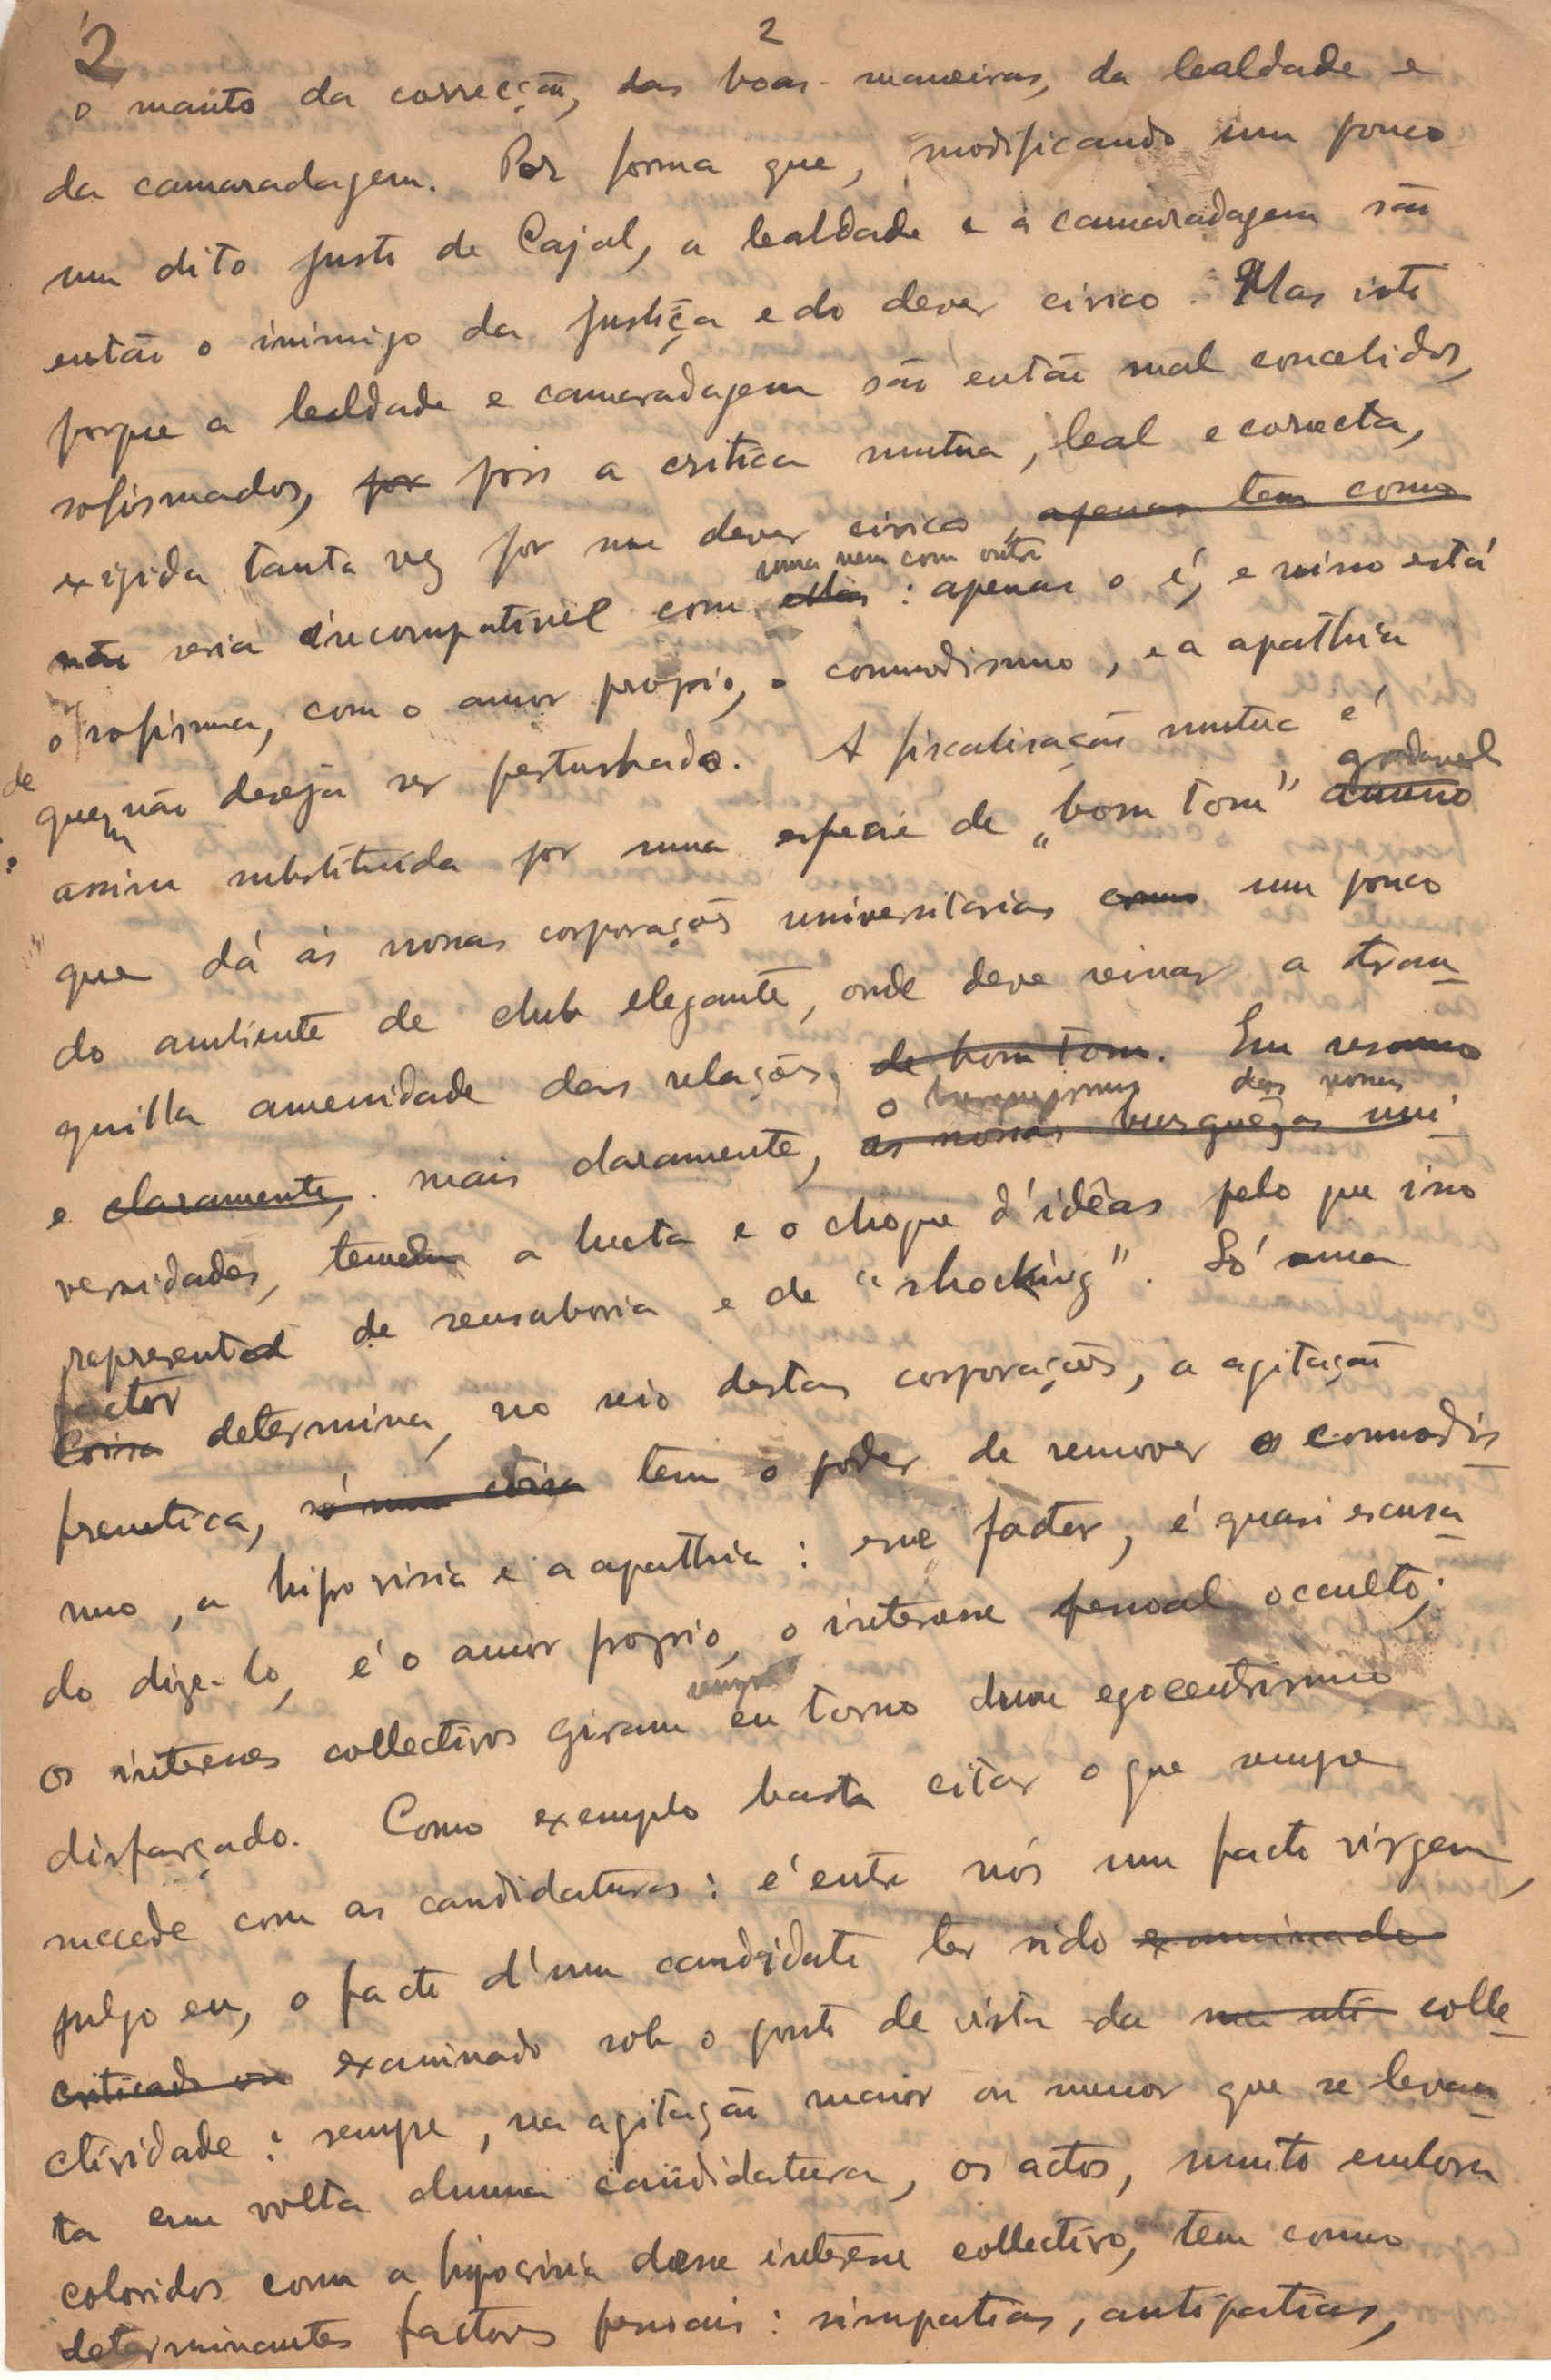 2
2
o manto da correcção, das boas maneiras, da lealdade e
da camaradagem. Por forma que, modificando um pouco
um dito justo de Cajal, a lealdade e a camaradagem são
então o inimigo da justiça e do dever civico. Mas isto
porque a lealdade e camaradagem são então mal concebidos,
sofismados, por pois a critica mutua, leal e correcta,
exigida tanta vez por um dever civico, apenas tem como
uma nem com outra
não seria incompativel com ellas : apenas o é, e nisso está
o sofisma, com o amor proprio, o commodismo, e a apathia
de quem não deseja ser perturbado. A fiscalisação mutua é,
gradavel
assim substituida por uma especie de "bom tom" ameno
que dá ás nossas corporações universitarias como um pouco
do ambiente de club elegante, onde deve reinar a tran-
quilla amenidade das relações, de bom tom. Em resumo
o das nossas
e claramente, mais claramente, as nossas burguêzas uni-
versidades, temem a lucta e o choque d'idêas pelo que isso
representa de sensaboria e de "shocking". Só uma
factor
Coisa determina, no seio destas corporações, a agitação
frenetica, só uma coisa tem o poder de remover o commodis-
mo, a hipocrisia e a apathia : esse factor, é quasi escusa-
do dize-lo, é o amor proprio, o interesse pessoal occulto;
sempre
os interesses collectivos giram em torno dum egocentrismo
disfarçado. Como exemplo basta citar o que sempre
succede com as candidaturas : é entre nós um facto virgem,
julgo eu, o facto d'um candidato ter sido examinado
criticado ou examinado sob o ponto de vista da colle-
ctividade : sempre, na agitação maior ou menor que se levan-
ta em volta duma candidatura, os actos, muito embora
coloridos com a hipocrisia desse interesse collectivo, tem como
determinantes factores pessoais : simpatias, antipatias,